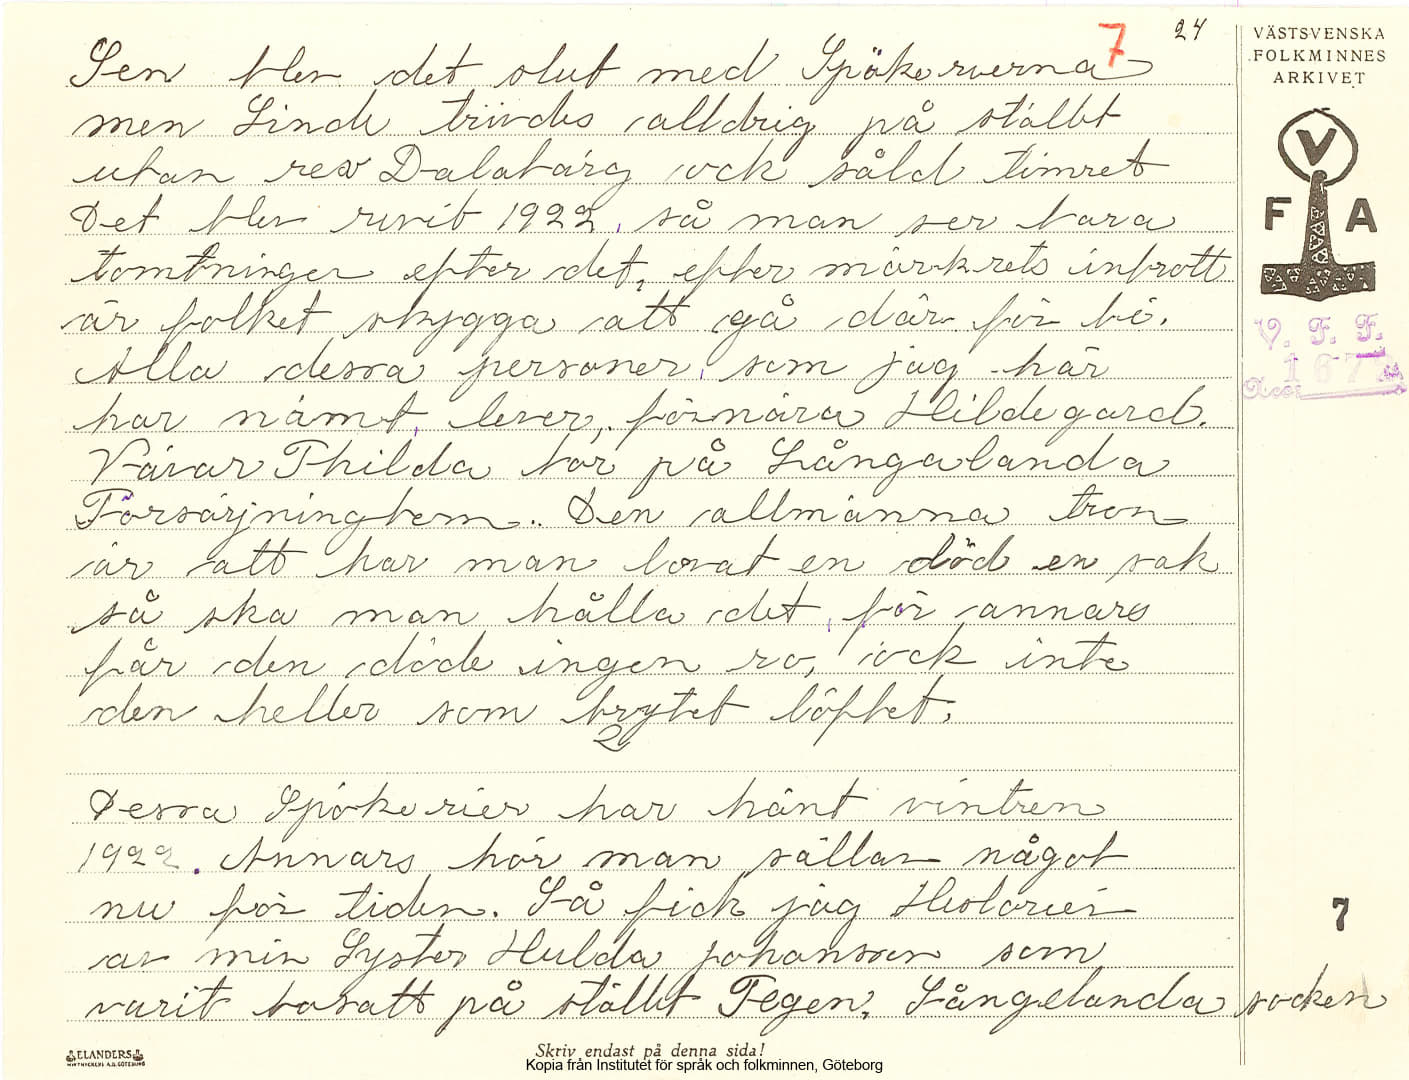 7 24
VÄSTSVENSKA
FOLKMINNES
ARKIVET
Sen blev det slut med Spökerverna
men Linde trivdes alldrig på stället
utan rev Dalabärg ock såld timret
Det blev rivit 1922, så man ser bara
tomtninger efter det, efter mörkrets inbrott
är folket skygga att gå där för bi.
Alla dessa personer, som jag här
har nämt, lever, förnära Hildegard.
Vävar Thilda bor på Långalanda
Försärjninghem. Den allmänna tron
är att har man lovat en död en sak
så ska man hålla det, för annars
får den döde ingen ro, ock inte
den heller som brytet löftet.
2
Dessa Spökerier har hänt vintren
1922. Annars hör man sällan något
nu för tiden. Så fick jag Historier
av min Syster Hulda Johansson som
varit bosatt på stället Tegen, Långelanda socken
V
F A
V. F. F.
167
Acc.
7
ELANDERS
Skriv endast på denna sida!
Kopia från Institutet för språk och folkminnen, Göteborg